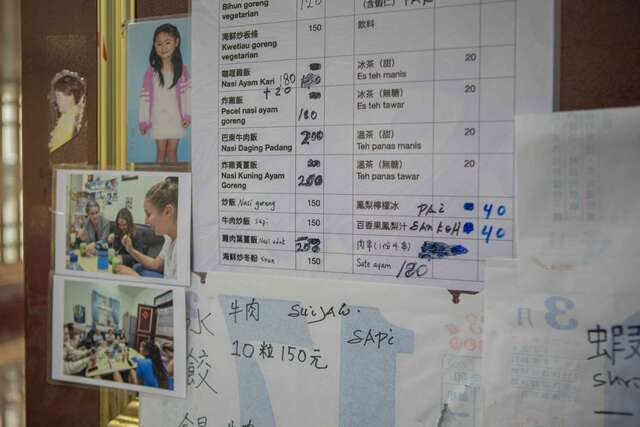 Bihun goreng
vegetarian
海鮮炒板條
Kwetiau goreng
vegetarian
150
飲料
咖哩雞飯
Nasi Ayam Kari
180
+20
冰茶（甜）
Es teh manis
20
炸雞飯
Pecel nasi ayam
goreng
180
冰茶（無糖）
Es teh tawar
20
巴東牛肉飯
Nasi Daging Padang
200
溫茶（甜）
Teh panas manis
20
炸雞黃薑飯
Nasi Kuning Ayam
Goreng
200
溫茶（無糖）
Teh panas tawar
20
炒飯 Nasi goreng
150
鳳梨檸檬冰
40
牛肉炒飯 sapi
150
百香果鳳梨汁
40
雞肉薑飯 Nasi uduk
200
海鮮炒冬粉
150
Sate ayam
牛肉
SAPI
水餃
10粒150元
3月
蝦